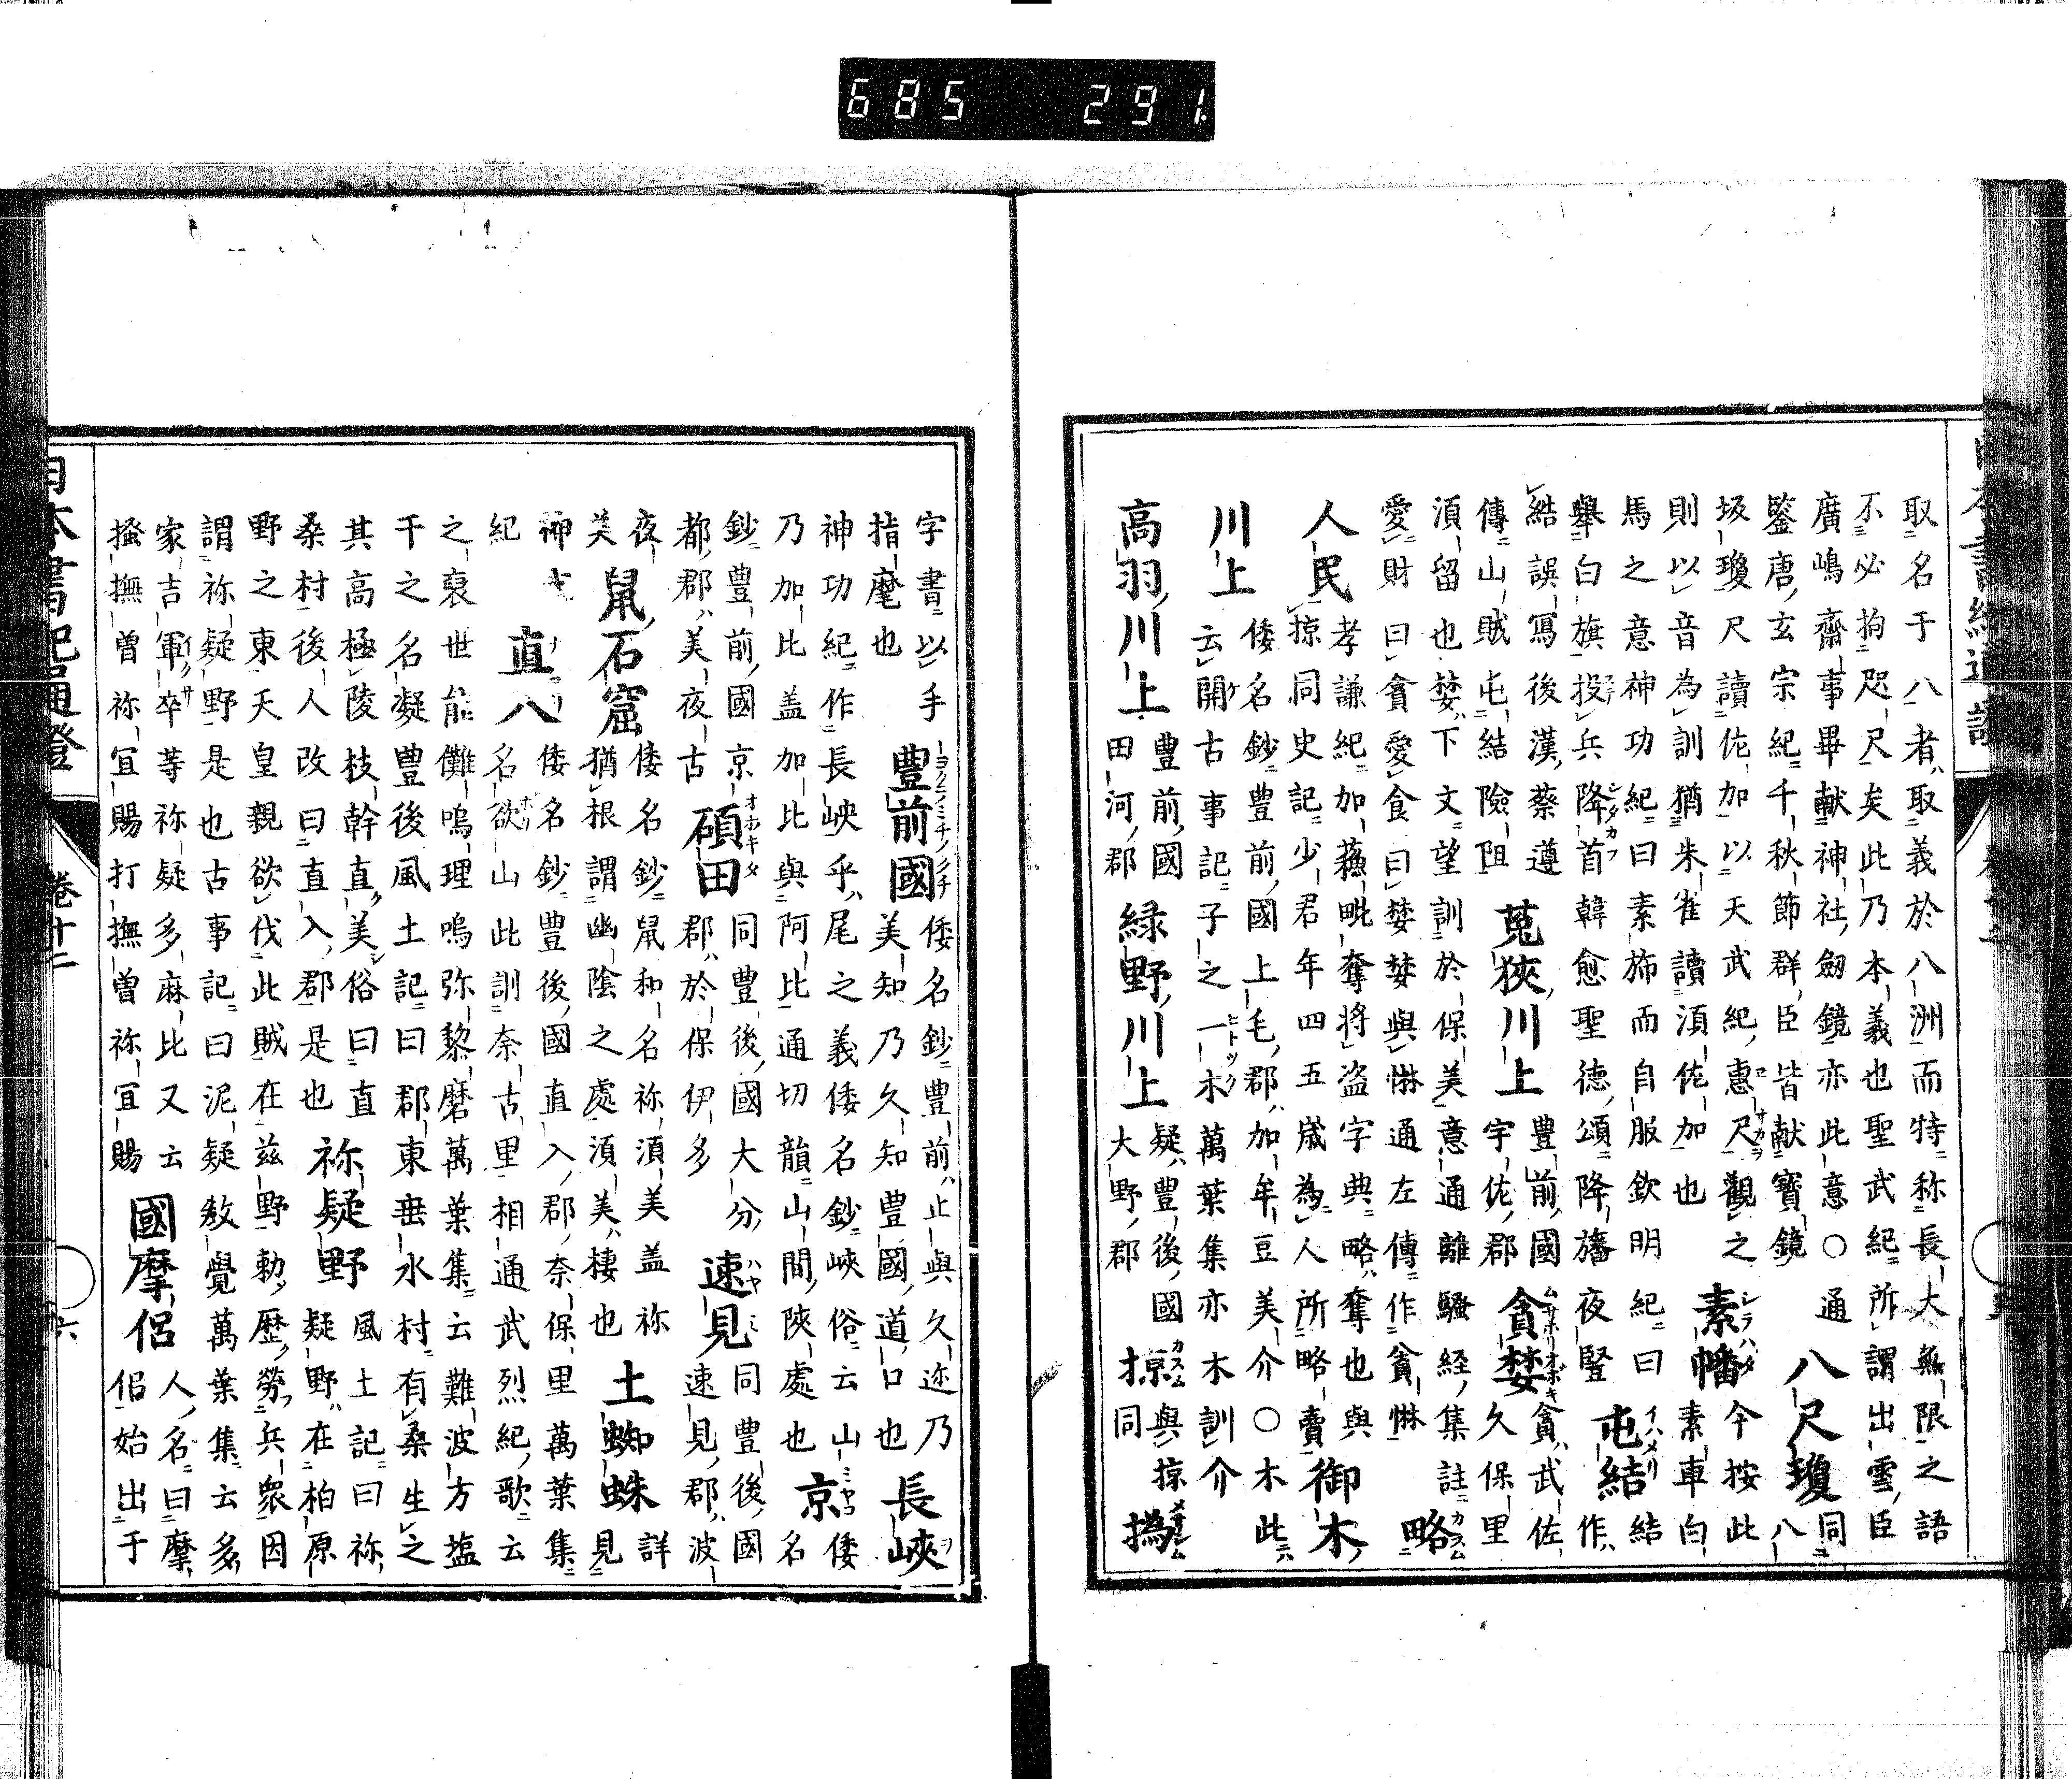 685 291
取名于八者取義於八洲而特称長大無限之語
不必拘咫尺矣此乃本義也聖武紀所謂出雲臣
廣嶋齋事畢献神社劔鏡亦此意○通 八尺瓊同
鑒唐玄宗紀千秋節群臣皆献寶鏡 八
坂瓊尺讀佐加以天武紀惠尺觀之 素幡今按此
則以音為訓猶朱雀讀湏佐加也 素車白
馬之意神功紀曰素斾而自服欽明紀曰結
舉白旗投兵降首韓愈聖德頌降旛夜竪 屯結作
結誤寫後漢蔡遵 菟狹川上豊前國 貪婪貪武佐
傳山賊屯結險阻 宇佐郡 久保里
湏留也婪下文望訓於保美意通離騒経集註
愛財曰貪愛食曰婪婪與惏通左傳作貪惏 略
人民孝謙紀加蘓毗奪将盗字典略奪也與 御木
掠同史記少君年四五歳為人所略賣
川上倭名鈔豊前國上毛郡加牟豆美介○木此
云開古事記子之一木萬葉集亦木訓介
高羽川上豊前國 緑野川上疑豊後國 掠與掠 撝
田河郡 大野郡 同
字書以手 豊前國倭名鈔豊前止與久迩乃 長峽
指麾也 美知乃久知豊國道口也
神功紀作長峽乎尾之義倭名鈔峽俗云山 京倭
乃加比盖加比與阿比通切韻山間陜處也 名
鈔豊前國京 碩田同豊後國大分 速見同豊後國
都郡美夜古 郡於保伊多 速見郡波
夜 鼠石窟倭名鈔鼠和名祢湏美盖祢 土蜘蛛詳
美 猶根謂幽陰之處湏美棲也 見
神
紀 直八倭名鈔豊後國直入郡奈保里萬葉集
名欲山此訓奈古里相通武烈紀歌云
之裒世能儺嗚理嗚弥黎磨萬葉集云難波方塩
干之名凝豊後風土記曰郡東垂水村有桑生之
其高極陵枝幹直美俗曰直 祢疑野風土記曰祢
桑村後人改曰直入郡是也 疑野在柏原
野之東天皇親欲伐此賊在兹野勅歴勞兵衆因
謂祢疑野是也古事記曰泥疑敎覺萬葉集云多
家吉軍卒等祢疑多麻比又云 國摩侶人名曰摩
搔撫曽祢宜賜打撫曽祢宜賜 侶始出于
日本書紀通證
卷十二
六